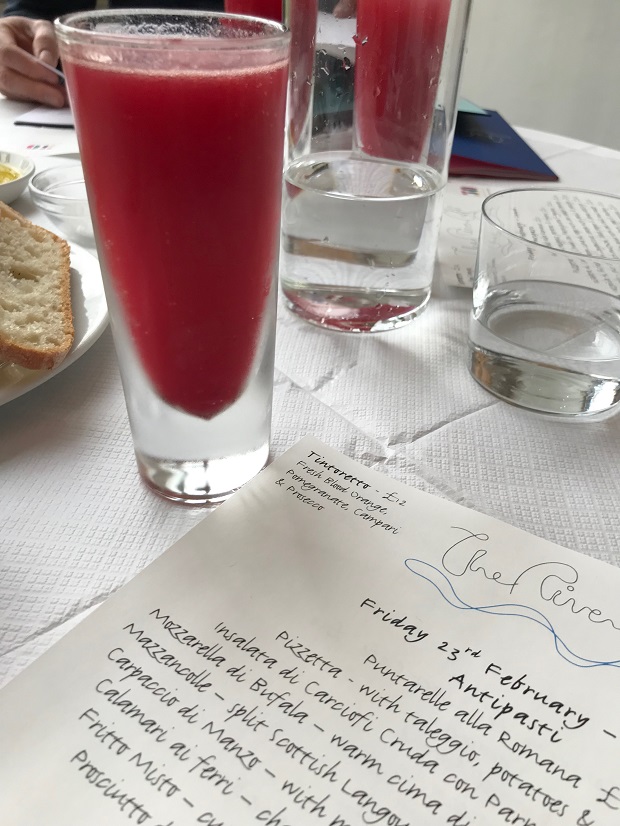 Tintoretto - £12
Fresh Blood Orange,
Pomegranate, Campari
& Prosecco
The River
Friday 23rd February -
Antipasti
Puntarelle alla Romana
Pizzetta - with taleggio, potatoes &
Insalata di Carciofi Cruda con Parm
Mozzarella di Bufala - warm cima di
Mazzancolle - split Scottish Langou
Carpaccio di Manzo - with m
Calamari ai ferri - cha
Fritto Misto - cu
Prosciutto d